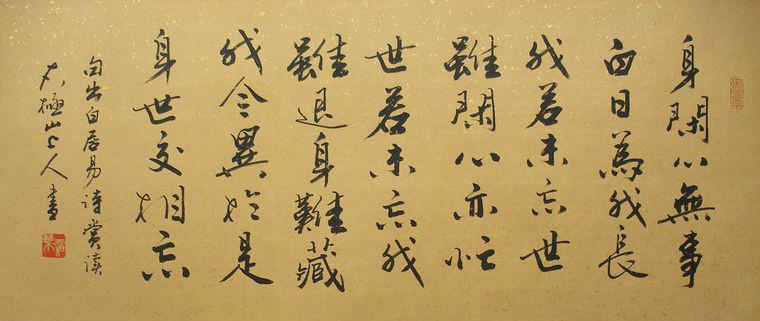 身閑心無事
白日為我長
我若未忘世
雖閑心亦忙
世若未忘我
雖退身難藏
我今異於是
身世交相忘
句出白居易詩賞读
極山上人書